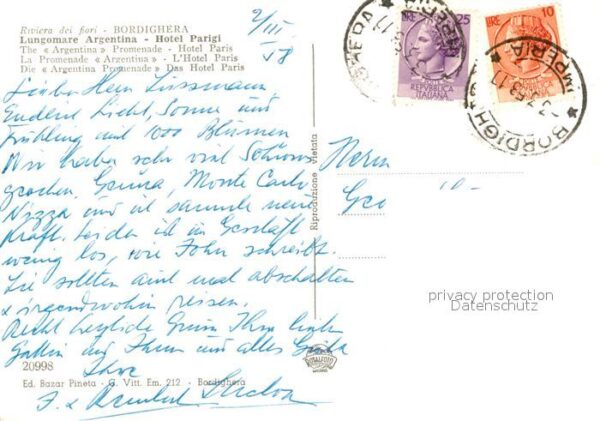 Riviera dei fiori - BORDIGHERA
Lungomare Argentina - Hotel Parigi
The « Argentina » Promenade - Hotel Paris
La Promenade « Argentina » - L'Hotel Paris
Die « Argentina Promenade » Das Hotel Paris
2/III
58
Lieber Herr Lussmann
Endlich Licht, Sonne und
Frühling und 1000 Blumen
Wir haben sehr viel Schönes
Genua, Monte Carlo
Nizza und ich sammle neue
Kraft. Leider ist im Geschäft
wenig los, wie John schreibt.
Sie sollten auch mal abschalten
& irgendwohin reisen.
Recht herzliche Grüsse Ihrer lieben
Gattin und Ihnen und alles Gute
Ihre
20998
Ed. Bazar Pineta - G. Vitt. Em. 212 - Bordighera
Riproduzione Vietata
LIRE 25
REPVBBLICA
ITALIANA
LIRE 10
BORDIGHERA
IMPERIA
Herrn
10-
privacy protection
Datenschutz